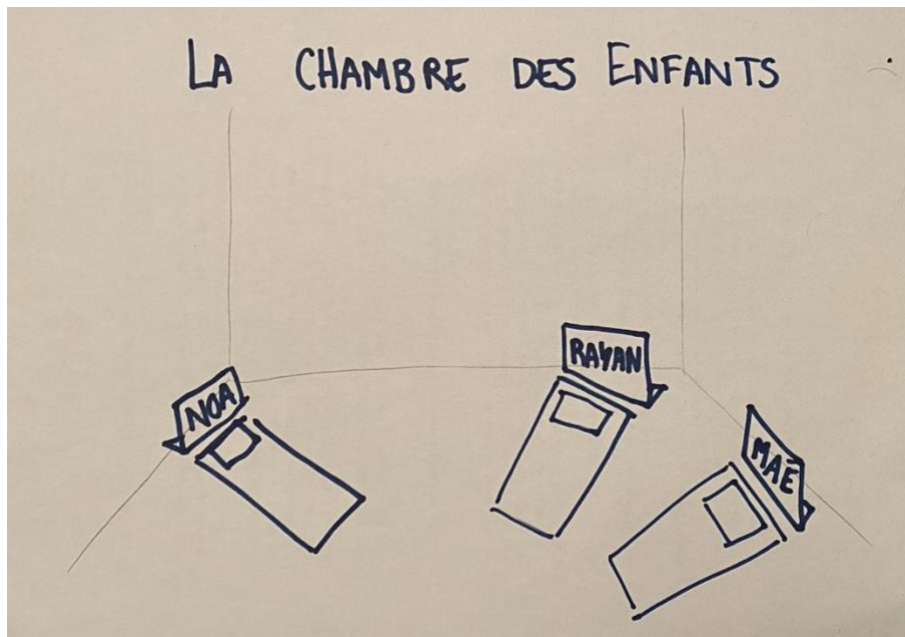 LA CHAMBRE DES ENFANTS
NOA
RAYAN
MAÉ